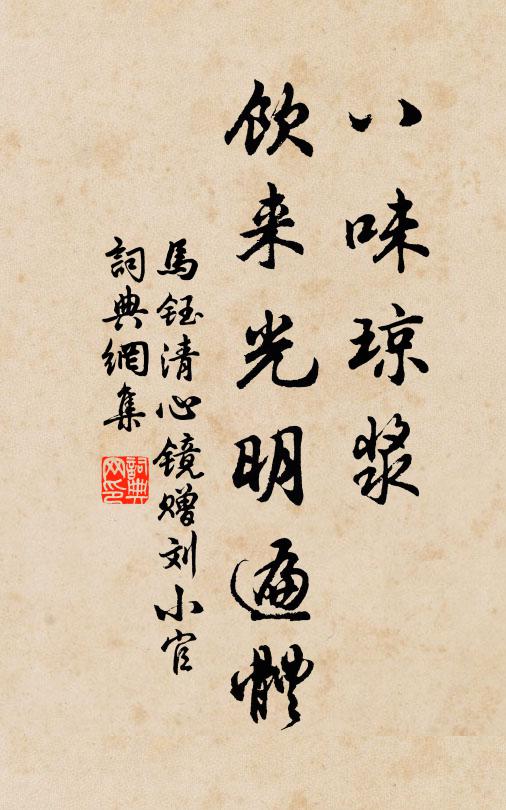 八味琼浆
饮来光明遍體
馬钰清心镜赠刘小官
詞典網集
詞典網印